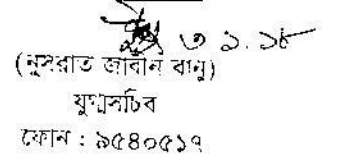 ৩১.১৮
(নুসরাত জাবীন বানু)
যুগ্মসচিব
ফোন : ৯৫৪০৫১৭